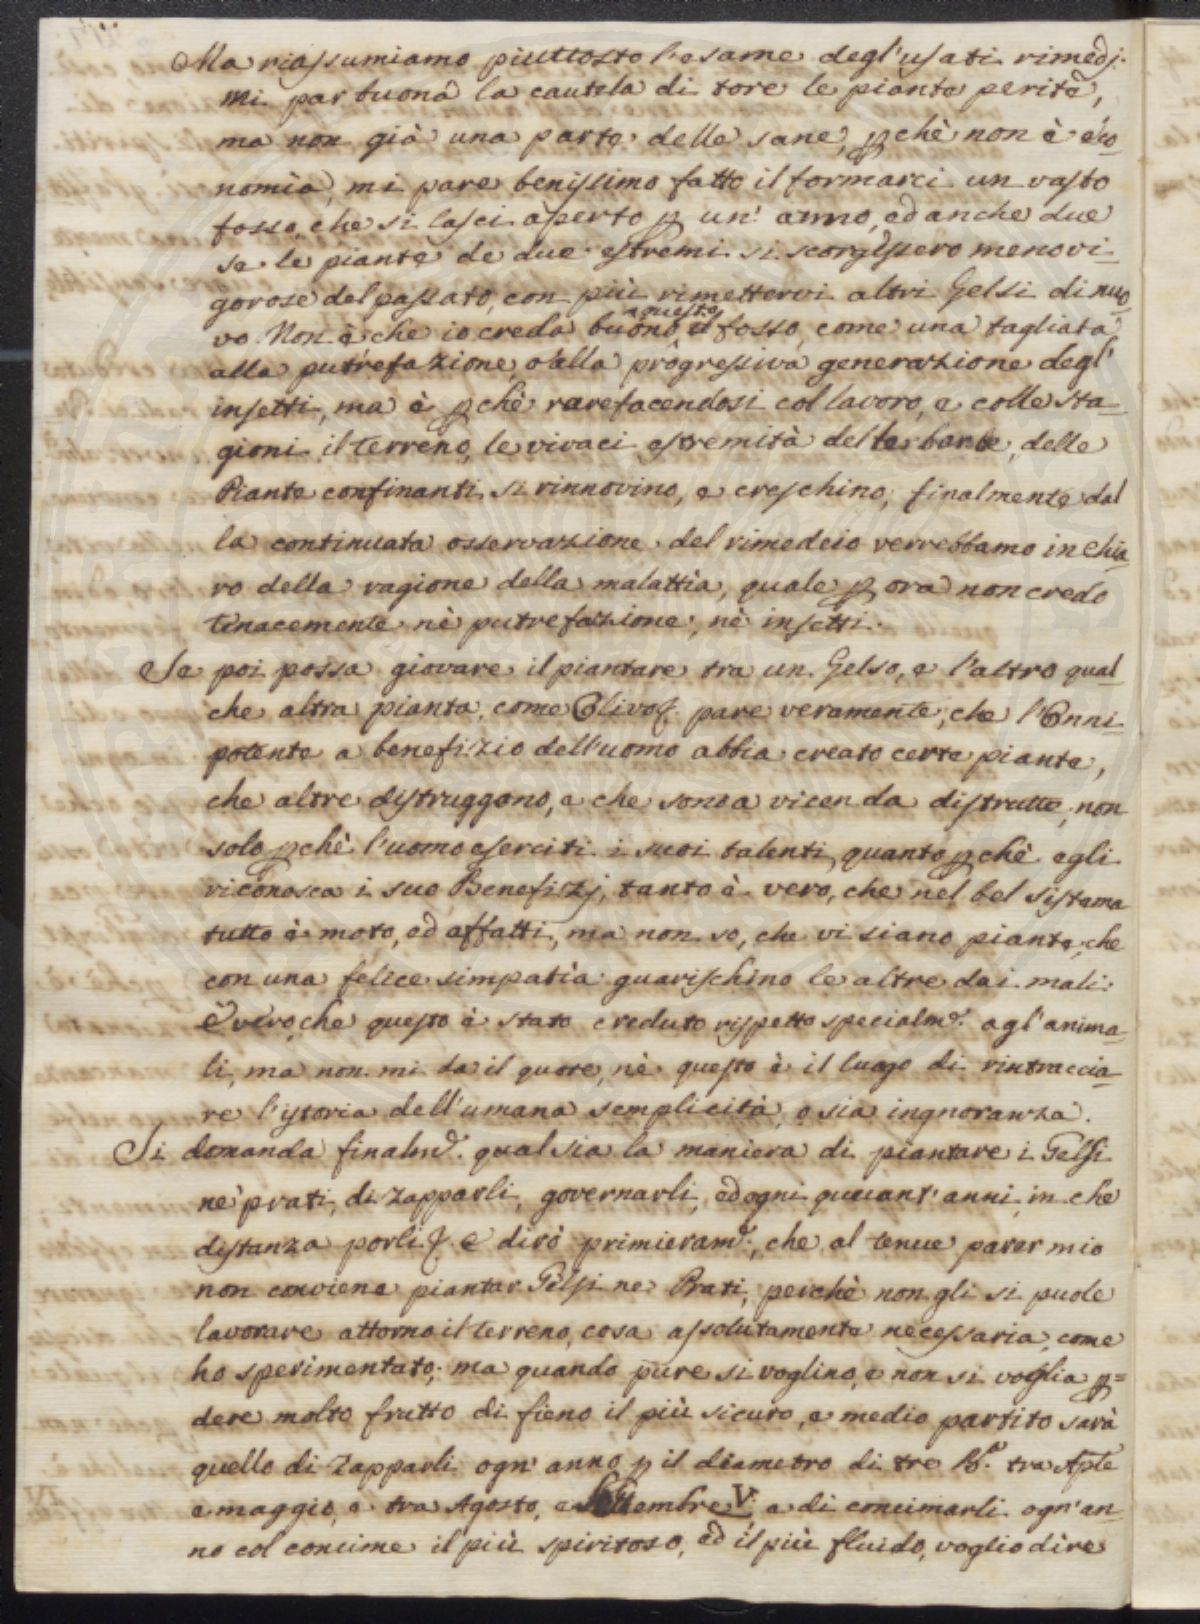 Ma riassumiamo piuttosto l'esame degl'usati rimedj.
mi par buona la cautela di tore le piante perite,
ma non già una parte delle sane, pchè non è eco-
nomia, mi pare benissimo fatto il formarci un vasto
fosso, che si lasci aperto p un' anno, ed anche due
se le piante de due estremi si scorgessero meno vi-
gorose del passato, con più rimettervi altri Gelsi di nuo-
vo. Non è che io creda buono questo fosso, come una tagliata
alla putrefazione, o alla progressiva generazione degl'
insetti, ma è pchè rarefacendosi col lavoro, e colle sta-
gioni il terreno, le vivaci estremità delle barbe, delle
Piante confinanti si rinnovino, e creschino, finalmente dal
la continuata osservazione del rimedeio verrebbamo in chia-
ro della ragione della malattia, quale p ora non credo
tenacemente nè putrefazione, nè insetti.
Se poi possa giovare il piantare tra un Gelso, e l'altro qual-
che altra pianta, come Olivo &. pare veramente, che l'Onni-
potente a benefizio dell'uomo abbia creato certe piante,
che altre distruggono, e che sono a vicenda distrutte, non
solo pchè l'uomo eserciti i suoi talenti, quanto pchè egli
riconosca i suo Benefizj, tanto è vero, che nel bel sistema
tutto è moto, ed affatti, ma non so, che vi siano piante, che
con una felice simpatia guarischino le altre dai mali:
È vero, che questo è stato creduto rispetto specialmẽ. agl'anima-
li, ma non mi da il quore, nè questo è il luogo di rintraccia-
re l'istoria dell'umana semplicità, o sia ingnoranza.
Si domanda finalmẽ. qual sia la maniera di piantare i Gelsi
ne' prati, di zapparli, governarli, ed ogni quant' anni, in che
distanza porli &. e dirò primieramẽ., che al tenue parer mio
non conviene piantar Gelsi ne' Prati, perchè non gli si puole
lavorare attorno il terreno, cosa assolutamente necessaria, come
ho sperimentato; ma quando pure si voglino, e non si voglia p=
dere molto frutto di fieno il più sicuro, e medio partito sarà
quello di zapparli ogn' anno p il diametro di tre Ba. tra Aple
e maggio, e tra Agosto, e Settembre V. e di concimarli ogn'an-
no col concime il più spiritoso, ed il più fluido, voglio dire